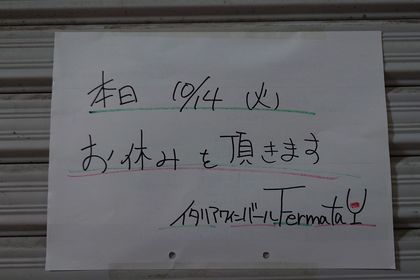 本日 10/14 (火)
お休みを頂きます
イタリアワインバール Fermata